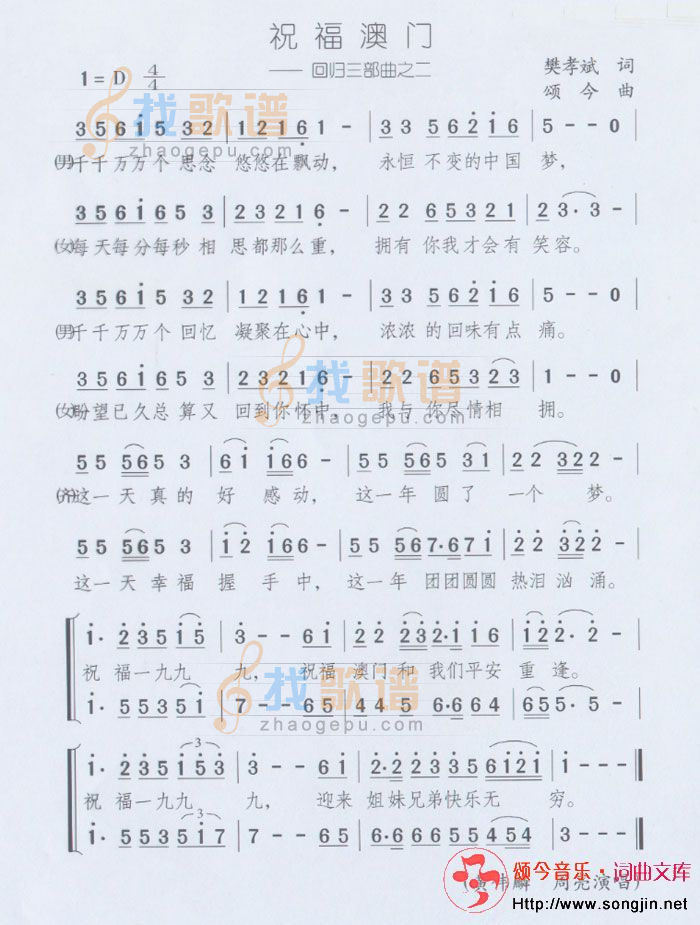 祝福澳门
1 = D 4/4 —— 回归三部曲之二 樊孝斌 词
颂 今 曲
3 5 6 1 5 3 2 | 1 2 1 6 1 - | 3 3 5 6 2 1 6 | 5 - - 0
(男)千千万万个 思念 悠悠在飘动， 永恒 不变的中国 梦，
3 5 6 1 6 5 3 | 2 3 2 1 6 - | 2 2 6 5 3 2 1 | 2 3· 3 -
(女)每天每分每秒 相 思都那么重， 拥有 你我才会有 笑容。
3 5 6 1 5 3 2 | 1 2 1 6 1 - | 3 3 5 6 2 1 6 | 5 - - 0
(男)千千万万个 回忆 凝聚在心中， 浓浓 的回味有点 痛。
3 5 6 1 6 5 3 | 2 3 2 1 6 - | 2 2 6 5 3 2 3 | 1 - - 0
(女)盼望已久总 算又 回到你怀中， 我与 你尽情相 拥。
5 5 5 6 5 3 | 6 1 1 6 6 - | 5 5 5 6 5 3 1 | 2 2 3 2 2 -
(齐)这一天真的 好 感动， 这一年 圆了 一个 梦。
5 5 5 6 5 3 | 1 2 1 6 6 - | 5 5 5 6 7·6 7 1 | 2 2 3 2 2 -
这一天幸福 握 手中， 这一年 团团圆圆 热泪 汹 涌。
1· 2 3 5 1 5 | 3 - - 6 1 | 2 2 2 3 2·1 1 6 | 1 2 2· 2 -
祝 福一九九 九， 祝福 澳门和 我们平安 重 逢。
1· 5 5 3 5 1 | 7 - - 6 5 | 4 4 5 6·6 6 4 | 6 5 5· 5 -
1· 2 3 5 1 5 3 | 3 - - 6 1 | 2·2 2 3 3 5 6 1 2 1 | 1 - - -
祝 福一九九 九， 迎来 姐妹兄弟快乐无 穷。
1· 5 5 3 5 1 7 | 7 - - 6 5 | 6·6 6 6 5 5 4 5 4 | 3 - - -
(黄伟麟 周亮演唱)
找歌谱
zhaogepu.com
找歌谱
zhaogepu.com
找歌谱
zhaogepu.com
颂今音乐·词曲文库
Http://www.songjin.net